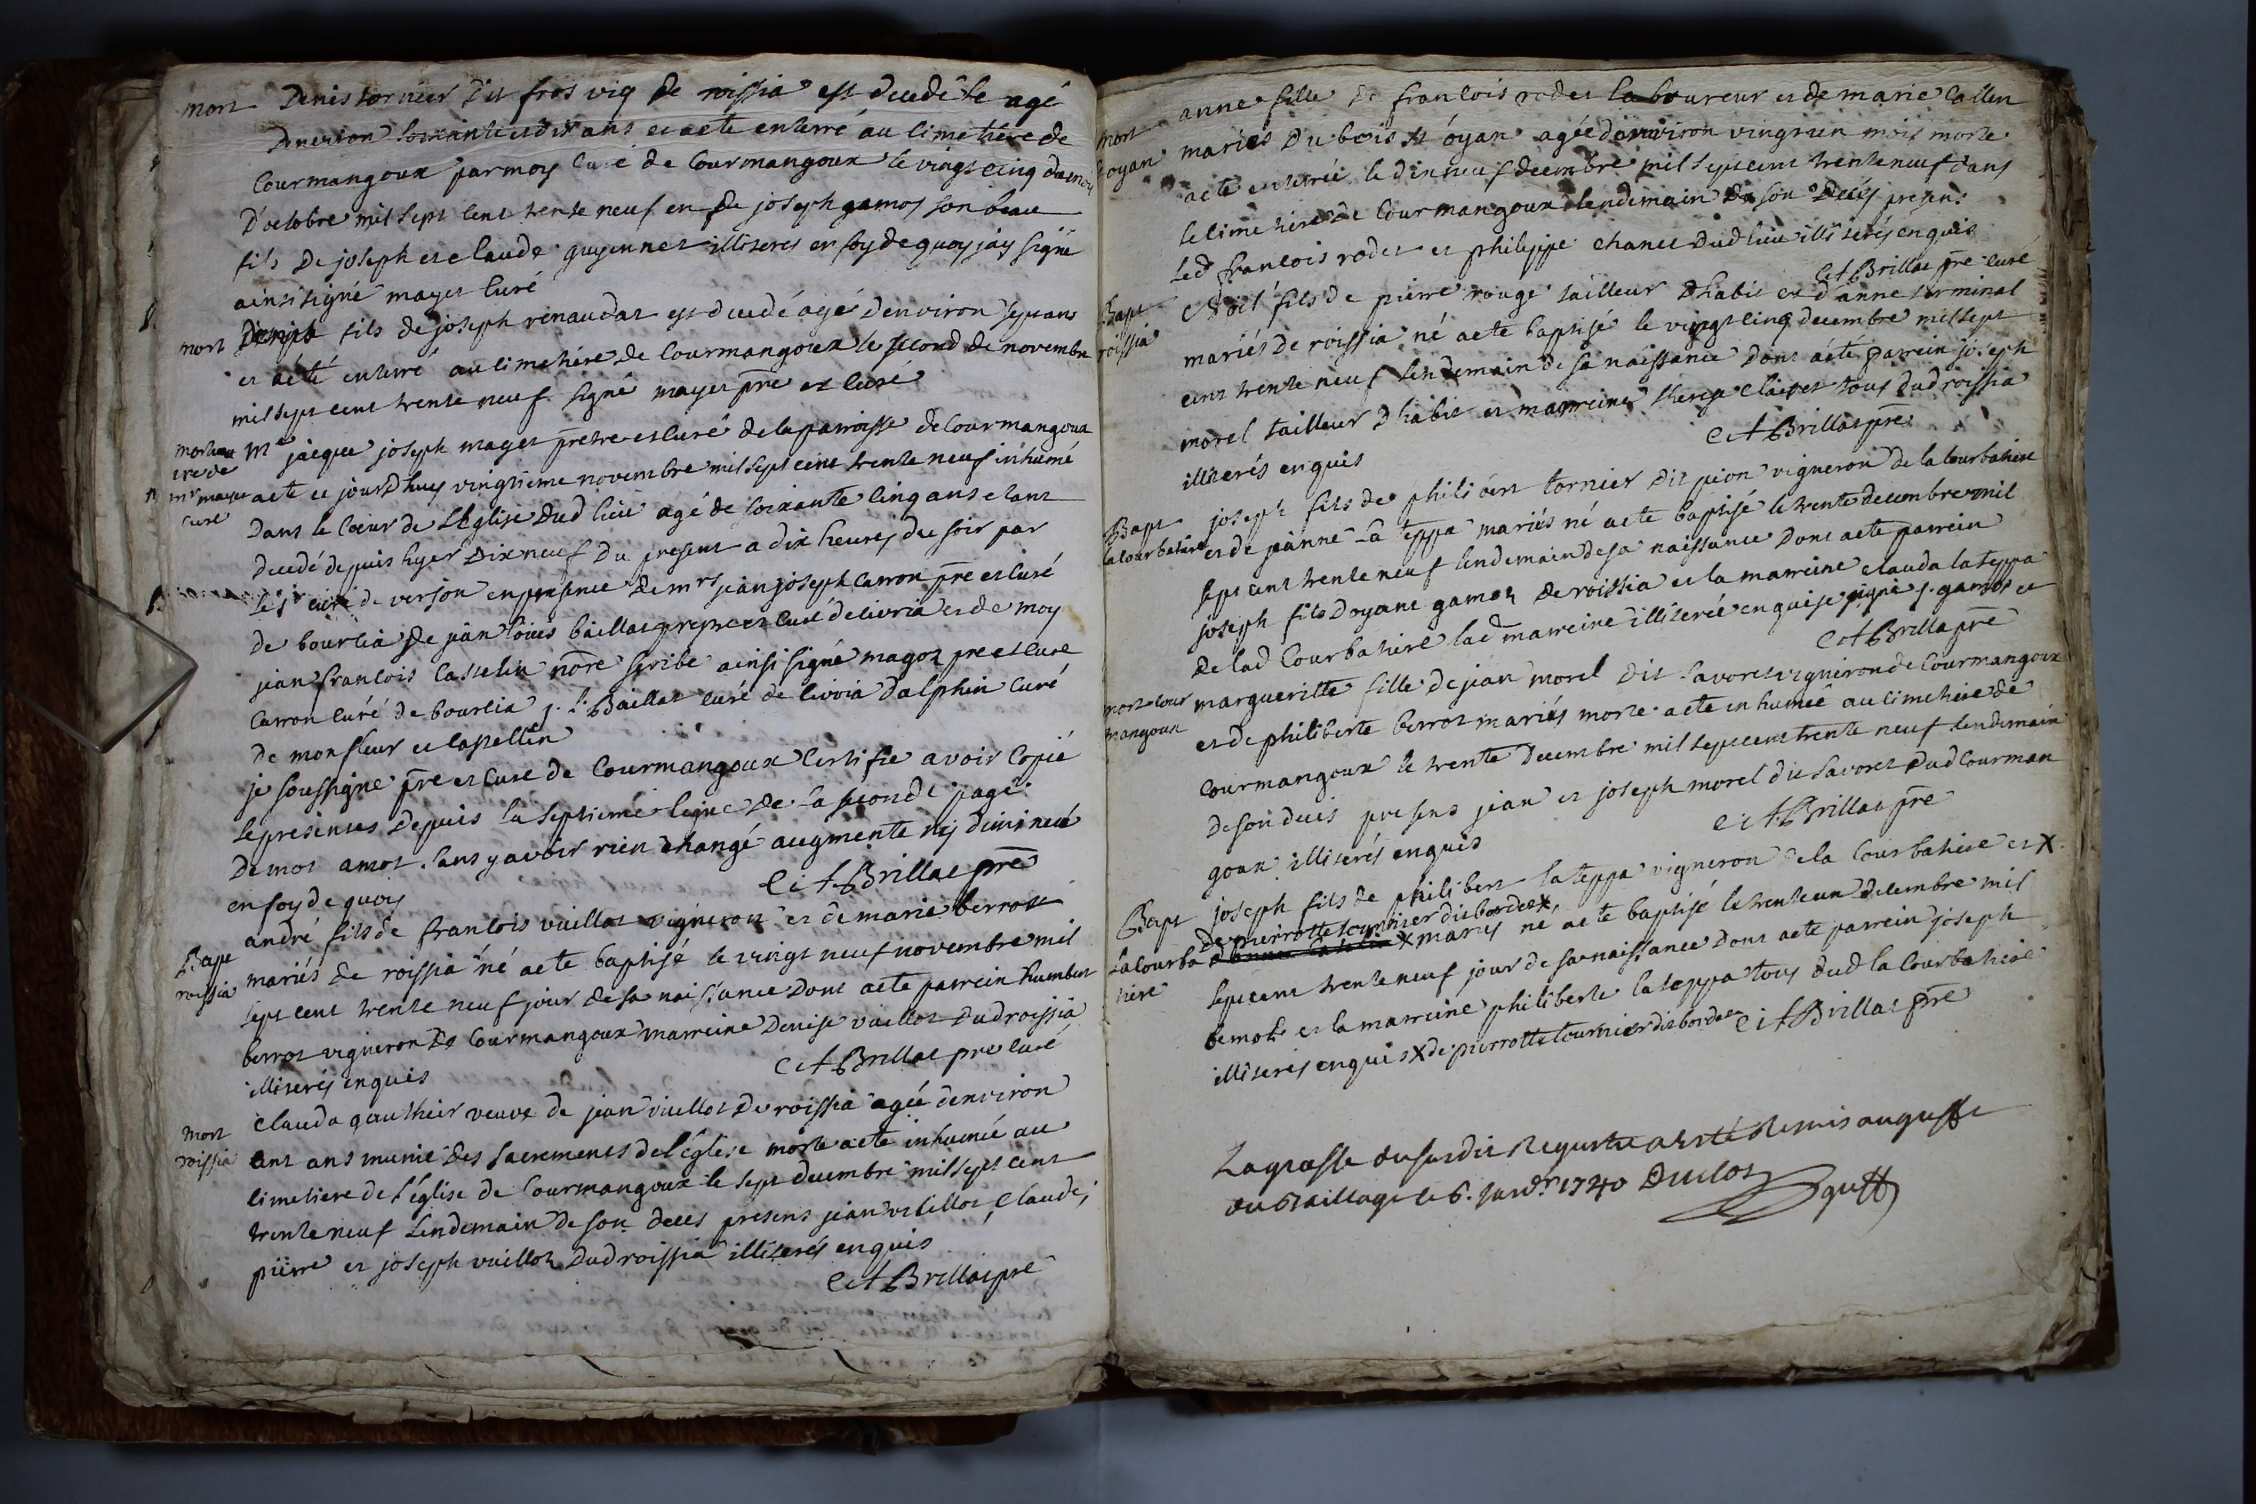 mort Denis tornier dit fros vig de roissia est decedé le agé
Denviron soixante et dix ans et a ete enterré au cimethière de
Courmangoux par moy curé de Courmangoux le vingt cinq du moy
D'octobre mil sept cent trente neuf en de joseph gamos son beau
fils De joseph et claude guyennet illiteres en foy de quoy jay signé
ainsi signé mayet curé
mort Denise fils de joseph renaudat est decedé agé denviron sept ans
et a été enterré au cimethiére de Courmangoux le second de novembre
mil sept cent trente neuf signé mayet pre et cure
mortuaire de mr mayet curé
mre jacque joseph mayet pretre et curé de la parroisse de Courmangoux
a ete ce jourdhuy vingtieme novembre mil sept cent trente neuf inhumé
Dans le Coeur de LEglise Dud lieu agé de soixante cinq ans etant
decedé depuis hyer dixneuf du present a dix heures du soir par
le sr curé de verjon en presence de mrs jean joseph Carron pre et curé
de bourcia de jean louis baillat pre et curé de livria et de moy
jean francois Casselin nore scribe ainsi signé magot pre et cure
Carron curé de bourcia j. l. Baillat curé de livria dalphin curé
de monfleur et Cassellin
je soussigné pre et cure de Courmangoux Certifie avoir Copié
les presentes depuis la septieme ligne de la seconde page
De mot amot sans y avoir rien changé augmenté ny diminué
en foy de quoy C A Brillat pre
Bapt roissia
andré fils de francois vuillot vigneron et de marie berrot
mariés de roissia né a ete baptisé le vingt neuf novembre mil
sept cent trente neuf jour de sa naissance Dont a ete parrein humbert
berrot vigneron de Courmangoux marreine Denise vuillot Dud roissia
illiterés enquis C A Brillat pre curé
mort roissia
Clauda gautheir veuve de jean vuillot de roissia agée denviron
cent ans munie des sacrements de l'église morte a ete inhumée au
cimetiere de l'église de Courmangoux le sept decembre mil sept cent
trente neuf Lendemain de son deces presens jean vuillot, Claude,
pierre et joseph vuillot Dud roissia illiterés enquis
C A Brillat pre
mort oyan
anne fille de francois rodet laboureur et de marie Callen
mariés Du bois st oyan agée denviron vingt un mois morte
a ete enterrée le dixneuf decembre mil sept cent trente neuf dans
le cimethiere de Courmangoux lendemain de son decés presens
led francois rodet et philippe chanet dud lieu illiterés enquis
C A Brillat pre curé
Bapt roissia
Noel fils de pierre rouge tailleur dhabit et d'anne terminal
mariés de roissia né a ete baptisé le vingt cinq decembre mil sept
cent trente neuf lendemain de sa naissance dont a ete parrein joseph
morel tailleur dhabit et marreine theresa claivet tous dud roissia
illiterés enquis C A Brillat pre
Bapt la courbatiere
joseph fils de philibert tornier dit pion vigneron de la Courbatiere
et de jeanne La teppa mariés né a ete baptisé le trente decembre mil
sept cent trente neuf lendemain de sa naissance Dont a ete parrein
joseph fils doyant gamos de roissia et la marreine clauda la teppa
de lad Courbatiere lad marreine illiterée enquise signé j. gamos et
C A Brillat pre
mort Cour mangoux
marguerite fille de jean morel dit Savoret vigneron de Courmangoux
et de philiberte berrot mariés morte a ete inhumée au cimethiere de
Courmangoux le trente decembre mil sept cent trente neuf lendemain
de son decés presens jean et joseph morel dit Savoret dud Courman
goux illiterés enquis C A Brillat pre
Bapt La courba tiere
joseph fils de philibert la teppa vigneron de la Courbatiere et X
de pierrotte tournier dit bordeX,
X mariés né a ete baptisé le trente un decembre mil
sept cent trente neuf jour de sa naissance dont a ete parrein joseph
bemol et la marreine philiberte la teppa tous dud la Courbatiere
illiterés enquis X de pierrotte tournier dit borde C A Brillat pre
La grosse du susdit Registre a esté Remis au greffe
du Bailliage le 6. janvr 1740 Duclos
greff